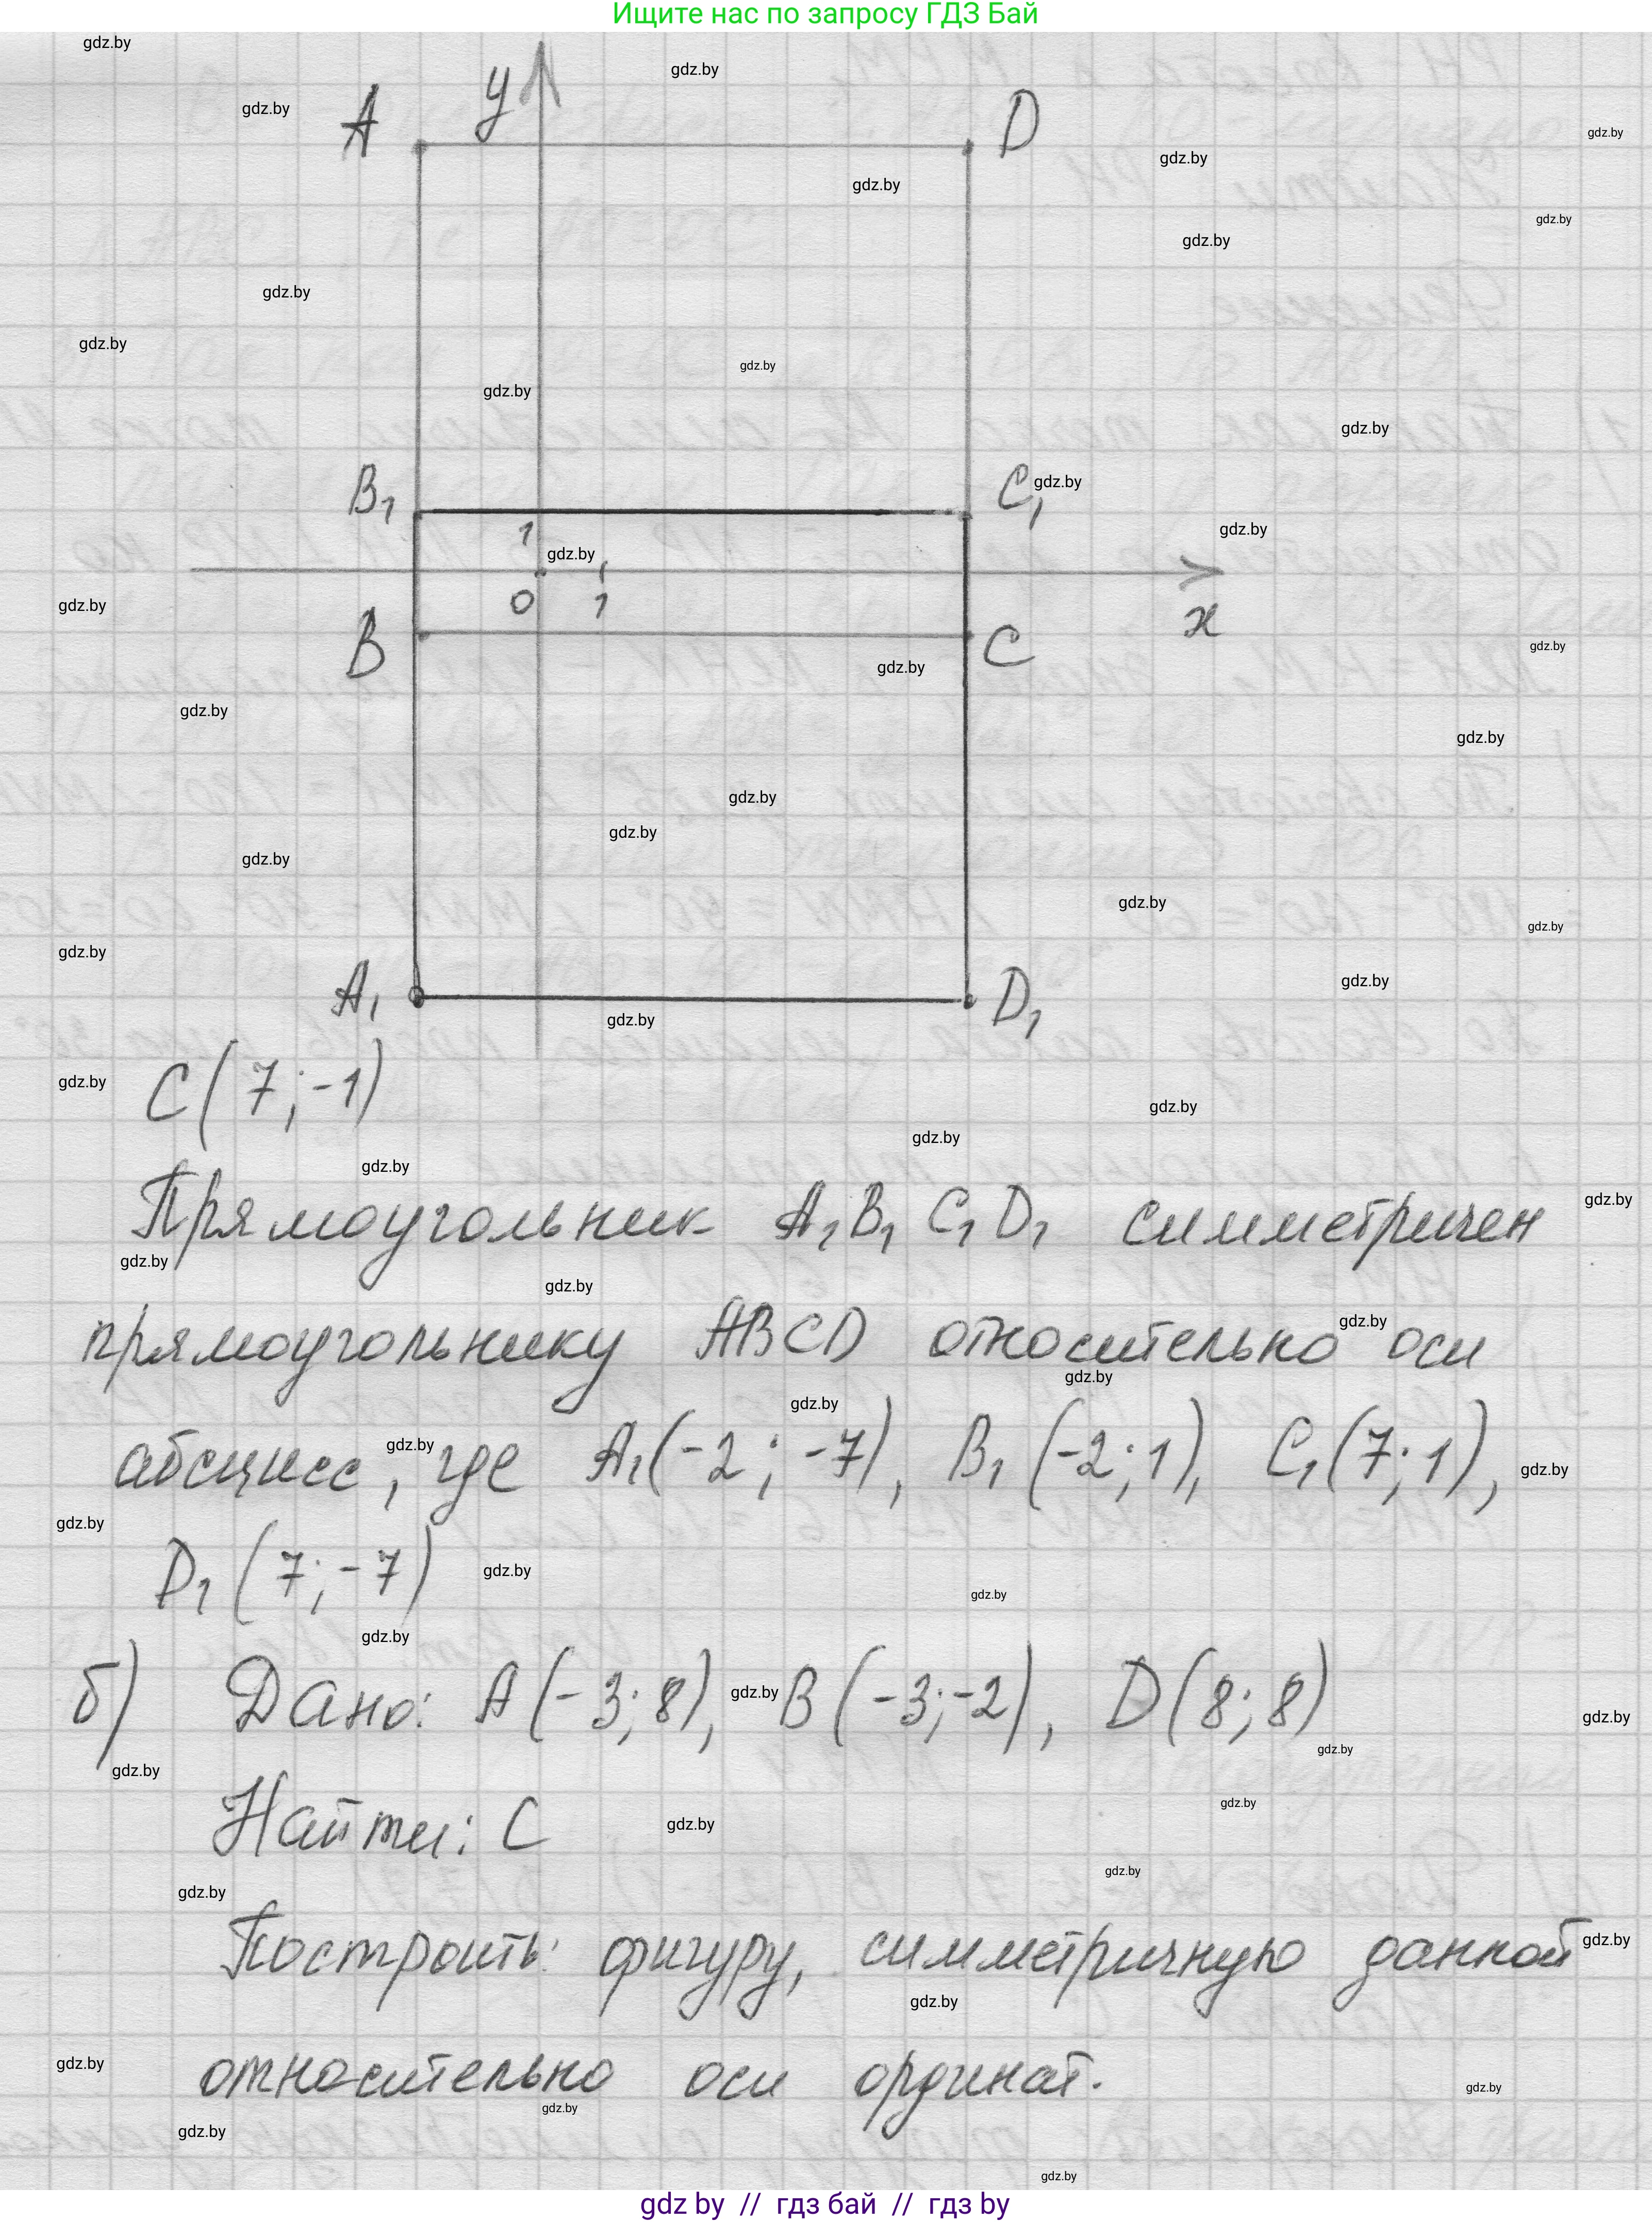 Ищите нас по запросу ГДЗ Бай
A
y
D
B₁
C₁
1
0
1
x
B
C
A₁
D₁
C(7;-1)
Прямоугольник A₁B₁C₁D₁ симметричен
прямоугольнику ABCD относительно оси
абсцисс, где A₁(-2; -7), B₁(-2; 1), C₁(7; 1),
D₁(7;-7)
б) Дано: A(-3; 8), B(-3;-2), D(8; 8)
Найти: C
Построить: фигуру, симметричную данной
относительно оси ординат.
gdz by // гдз бай // гдз by